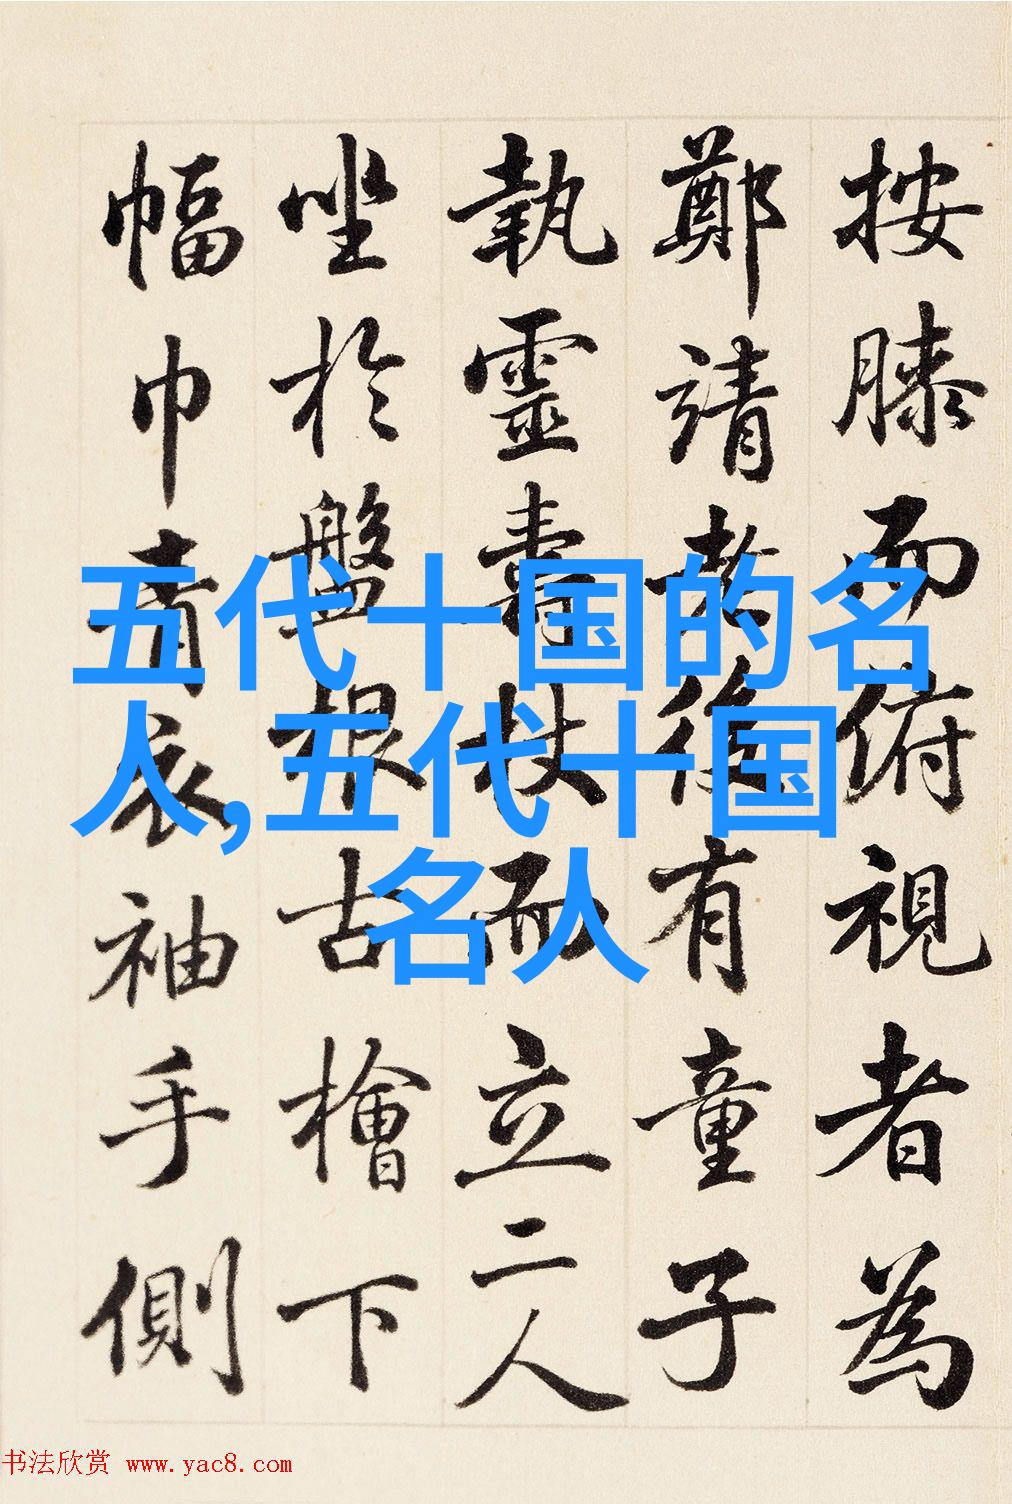 按膝而俯視者為
鄭靖老後有童子
執靈壽杖而立二人
坐於盤根古檜下
幅巾青衣袖手側
五代十国的名
人,五代十国
名人
书法欣赏 www.yac8.com